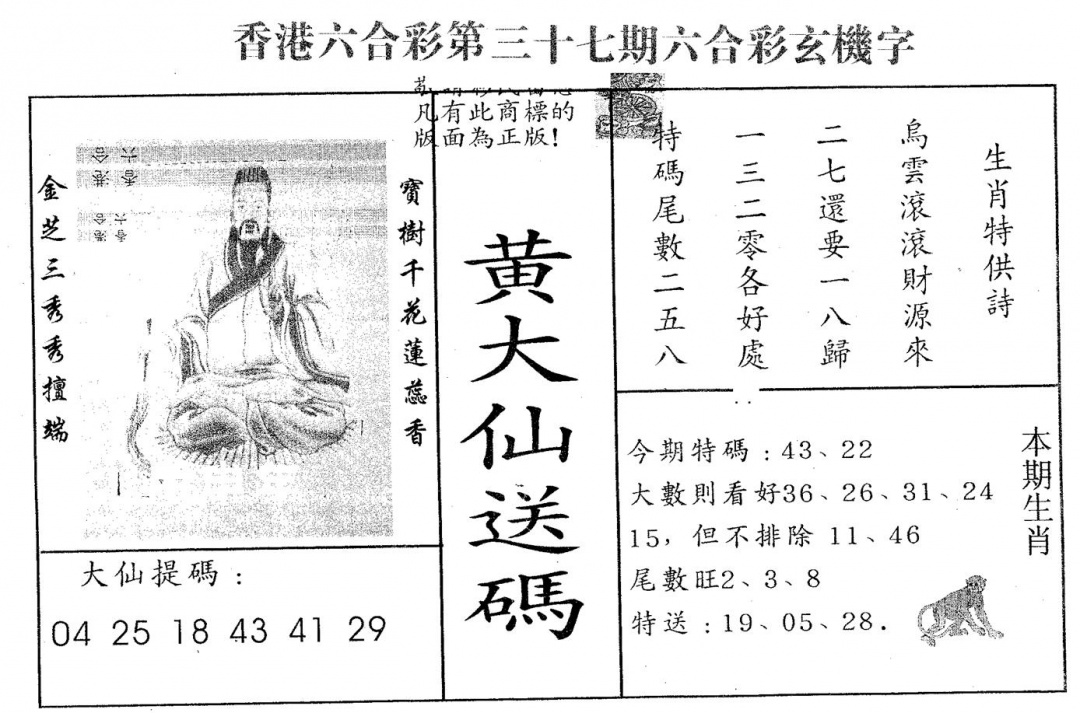 香港六合彩第三十七期六合彩玄機字
凡有此商標的
版面為正版！
寶樹千花蓮蕊香
金芝三秀秀擅端
大仙提碼：
04 25 18 43 41 29
黃大仙送碼
生肖特供詩
烏雲滾滾財源來
二七還要一八歸
一三二零各好處
特碼尾數二五八
本期生肖
今期特碼：43、22
大數則看好36、26、31、24
15，但不排除 11、46
尾數旺2、3、8
特送：19、05、28．